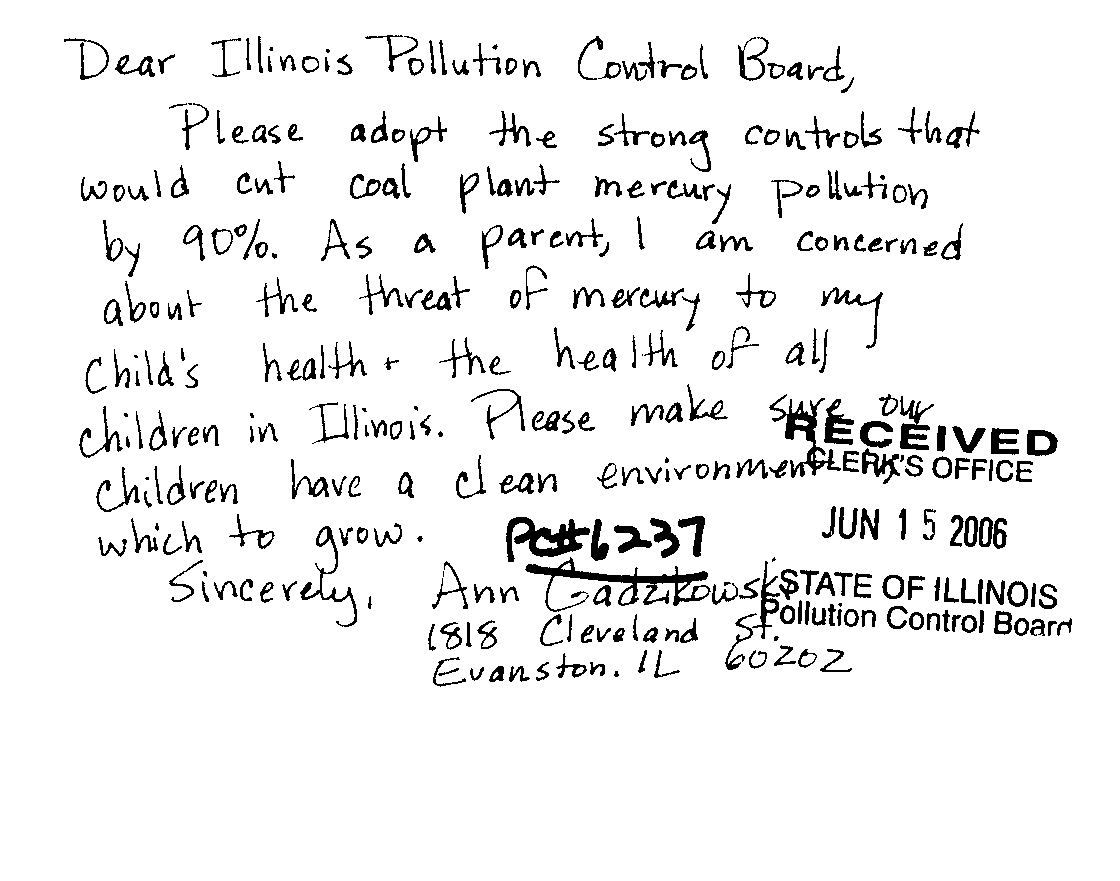 Dear Illinois Pollution Control Board,
Please adopt the strong controls that
would cut coal plant mercury pollution
by 90%. As a parent, I am concerned
about the threat of mercury to my
child's health + the health of all
children in Illinois. Please make sure our
children have a clean environment in
which to grow.
Sincerely, Ann Gadzikowski
1818 Cleveland St.
Evanston, IL 60202
PC#6237
RECEIVED
CLERK'S OFFICE
JUN 15 2006
STATE OF ILLINOIS
Pollution Control Board